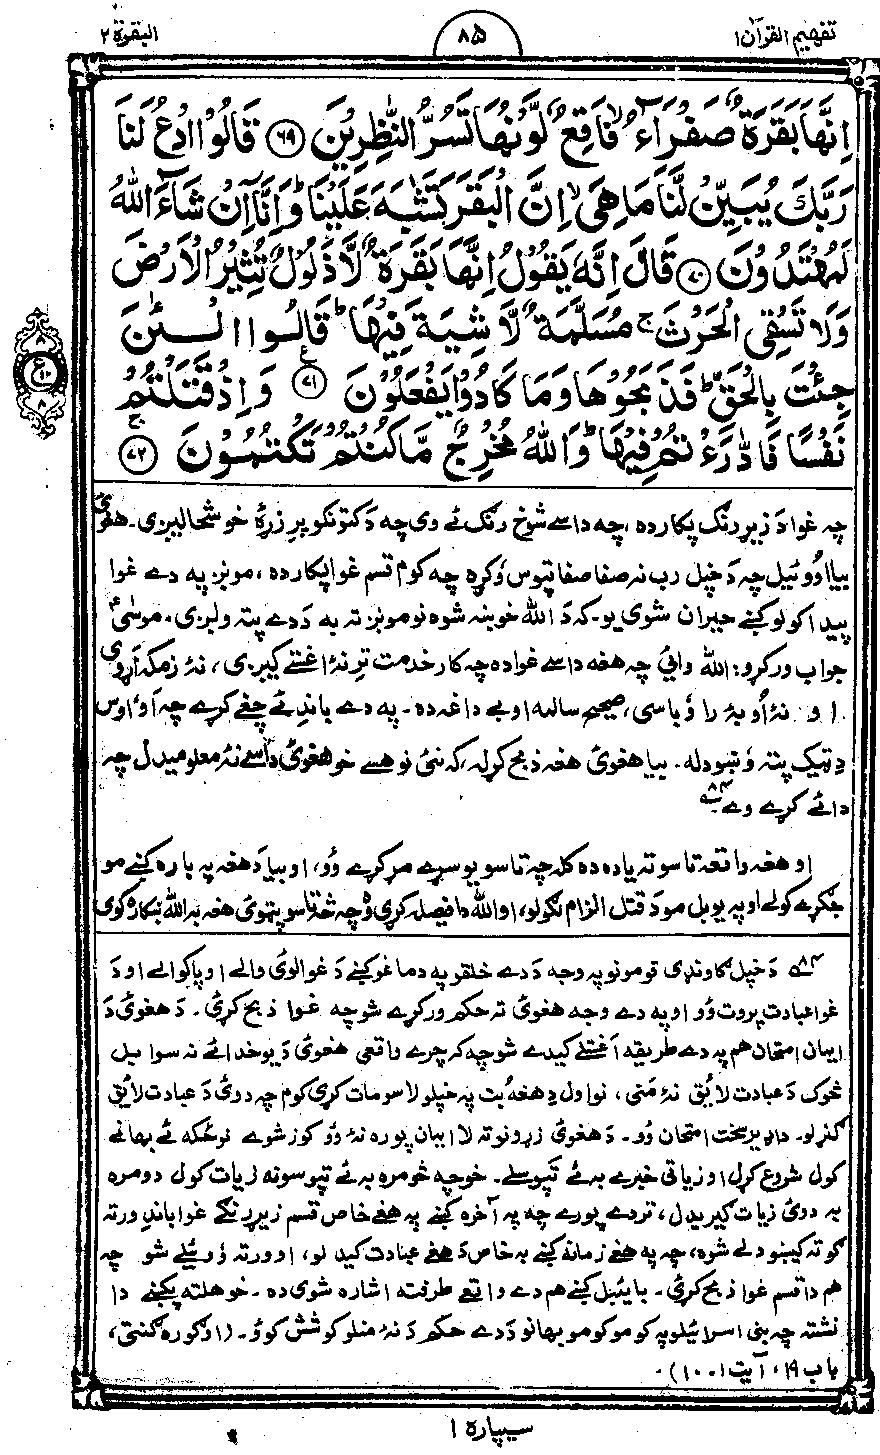 تفهیم القرآن ۱
۸۵
البقرة ۲
اِنَّهَا بَقَرَةٌ صَفْرَآءُ ۙ فَاقِعٌ لَّوْنُهَا تَسُرُّ النّٰظِرِيْنَ ﴿۶۹﴾ قَالُوا ادْعُ لَنَا
رَبَّكَ يُبَيِّنْ لَّنَا مَا هِيَ ۙ اِنَّ الْبَقَرَ تَشٰبَهَ عَلَيْنَا ؕ وَاِنَّاۤ اِنْ شَآءَ اللّٰهُ
لَمُهْتَدُوْنَ ﴿۷۰﴾ قَالَ اِنَّهٗ يَقُوْلُ اِنَّهَا بَقَرَةٌ لَّا ذَلُوْلٌ تُثِيْرُ الْاَرْضَ
وَلَا تَسْقِي الْحَرْثَ ۚ مُسَلَّمَةٌ لَّا شِيَةَ فِيْهَا ؕ قَالُوا الْـئٰنَ
جِئْتَ بِالْحَقِّ ؕ فَذَبَحُوْهَا وَمَا كَادُوْا يَفْعَلُوْنَ ﴿۷۱﴾ ع وَاِذْ قَتَلْتُمْ
نَفْسًا فَادّٰرَءْتُمْ فِيْهَا ؕ وَاللّٰهُ مُخْرِجٌ مَّا كُنْتُمْ تَكْتُمُوْنَ ۚ ﴿۷۲﴾
چه غوا د زیړ رنګ پکار ده، چه داسے شوخ رنګ ئے وی چه د کتونکو پرِ زړۀ خوشحالیږی۔ هغوئ
بیا اووئیل چه د خپل رب نه صفا صفا تپوس وٗکړه چه کوم قسم غوا پکار ده، مونږ په دے غوا
پیدا کولو کښے حیران شوی یو۔ که د الله خوښه شوه نو مونږ ته به د دے پته ولږی۔ موسٰیؑ
جواب ورکړو: الله وائی چه هغه داسے غوا ده چه کار خدمت ترِ نۀ اغستے کیږی، نۀ زمکه اړوی
او نۀ اُوبۀ را وٗباسی، صحیح سالمه او بے داغه ده۔ په دے باندے ئے چغے کړے چه اوٗ اوس
دِ ټیک پته وٗښودله۔ بیا هغوئ هغه ذبح کړله، که نئ نو هسے خو هغوئ داسے نۀ معلومیدل چه
دا ئے کړے وے ۸۴؎
او هغه واقعه تاسو ته یاده ده کله چه تاسو یو سړے مړ کړے وٗو، او بیا د هغه په باره کښے مو
جګړے کولے او په یو بل مو د قتل الزام لګولو، او الله دا فیصله کړی وه چه څۀ تاسو پټوئ هغه به الله ښکاره کوی
۸۴؎ د خپل ګاونډی قومونو په وجه د دے خلقو په دماغو کښے د غوا لوئ والے او پاکوالے او د
غوا عبادت پروت وٗو او په دے وجه هغوئ ته حکم ورکړے شو چه غوا ذبح کړئ۔ د هغوئ د
ایمان امتحان هم په دے طریقه اغستلے کیدے شو چه که چرے واقعی هغوئ د یو خدائے نه سوا بل
څوک د عبادت لائق نۀ منی، نو اول دِ هغه بُت په خپلو لاسو مات کړی کوم چه دوئ د عبادت لائق
ګنړلو۔ دا ډیر سخت امتحان وٗو۔ د هغوئ زړونو ته لا ایمان پوره نۀ وٗو کوز شوے نو ځکه ئے بهانے
کول شروع کړل او زیاتی خبرے به ئے تپوسلے۔ خو چه څومره به ئے تپوسونه زیات کول دومره
به دوئ زیات ګیریدل، تر دے پورے چه په آخره کښے په هغے خاص قسم زیړ رنګے غوا باندِ ورته
ګوته کیښودلے شوه، چه په هغے زمانه کښے به خاص د هغے عبادت کیدلو، او ورته وٗوئیلے شو چه
هم دا قسم غوا ذبح کړئ۔ بائیبل کښے هم دے واقعے طرفته اشاره شوی ده۔ خو هلته پکښے دا
نشته چه بنی اسرائیلو په کومو کومو بهانو د دے حکم د نۀ منلو کوشش کوٗو۔ (اوګوره ګنتی،
باب ۱۹، آیت ۱۔۱۰)۔
سیپاره ۱